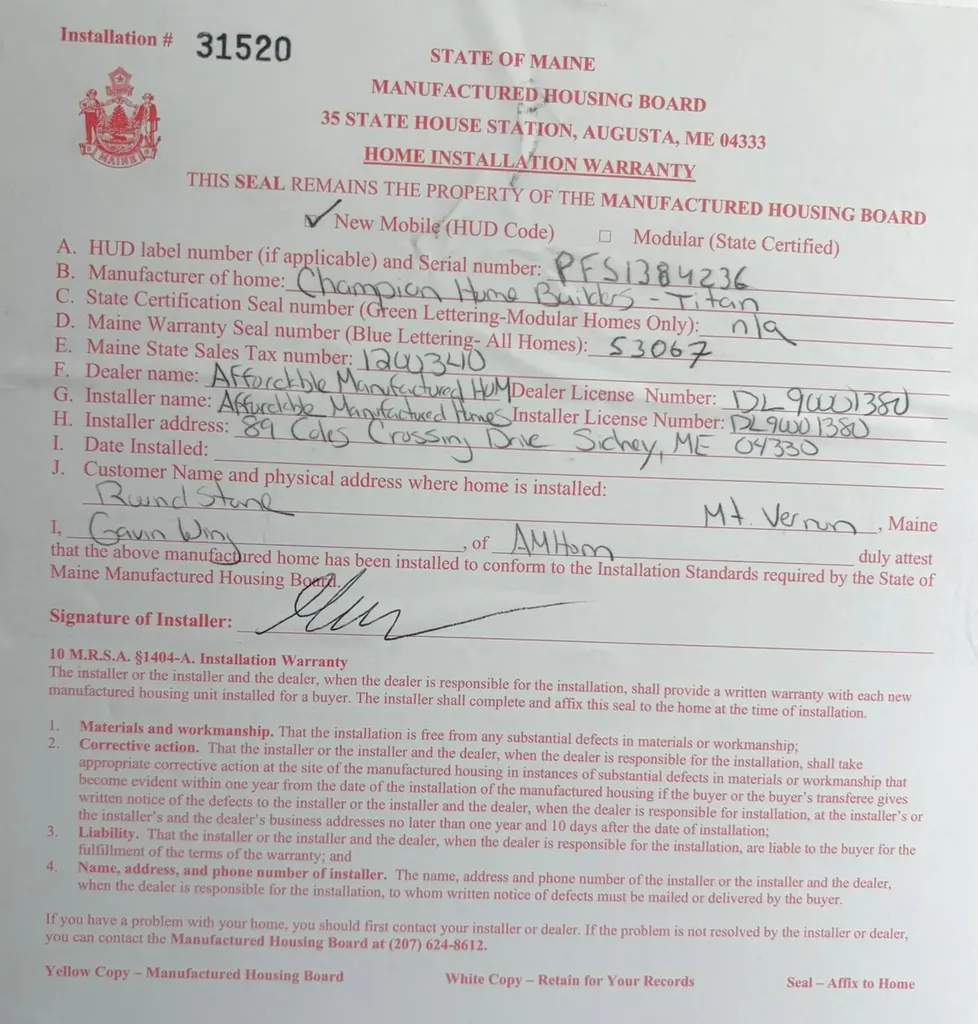 Installation # 31520
STATE OF MAINE
MANUFACTURED HOUSING BOARD
35 STATE HOUSE STATION, AUGUSTA, ME 04333
HOME INSTALLATION WARRANTY
THIS SEAL REMAINS THE PROPERTY OF THE MANUFACTURED HOUSING BOARD
MAINE
✓ New Mobile (HUD Code) □ Modular (State Certified)
A. HUD label number (if applicable) and Serial number: PFS1384236
B. Manufacturer of home: Champion Home Builders - Titan
C. State Certification Seal number (Green Lettering-Modular Homes Only): n/a
D. Maine Warranty Seal number (Blue Lettering- All Homes): 53067
E. Maine State Sales Tax number:
F. Dealer name: Affordable Manufactured HOM Dealer License Number:
G. Installer name: Affordable Manufactured Homes Installer License Number:
H. Installer address: 89 Coles Crossing Drive Sidney, ME 04330
I. Date Installed:
J. Customer Name and physical address where home is installed:
Round Stone Mt. Vernon, Maine
I, Gavin Wing, of AMHom duly attest
that the above manufactured home has been installed to conform to the Installation Standards required by the State of
Maine Manufactured Housing Board.
Signature of Installer:
10 M.R.S.A. §1404-A. Installation Warranty
The installer or the installer and the dealer, when the dealer is responsible for the installation, shall provide a written warranty with each new
manufactured housing unit installed for a buyer. The installer shall complete and affix this seal to the home at the time of installation.
1. Materials and workmanship. That the installation is free from any substantial defects in materials or workmanship;
2. Corrective action. That the installer or the installer and the dealer, when the dealer is responsible for the installation, shall take
appropriate corrective action at the site of the manufactured housing in instances of substantial defects in materials or workmanship that
become evident within one year from the date of the installation of the manufactured housing if the buyer or the buyer's transferee gives
written notice of the defects to the installer or the installer and the dealer, when the dealer is responsible for installation, at the installer's or
the installer's and the dealer's business addresses no later than one year and 10 days after the date of installation;
3. Liability. That the installer or the installer and the dealer, when the dealer is responsible for the installation, are liable to the buyer for the
fulfillment of the terms of the warranty; and
4. Name, address, and phone number of installer. The name, address and phone number of the installer or the installer and the dealer,
when the dealer is responsible for the installation, to whom written notice of defects must be mailed or delivered by the buyer.
If you have a problem with your home, you should first contact your installer or dealer. If the problem is not resolved by the installer or dealer,
you can contact the Manufactured Housing Board at (207) 624-8612.
Yellow Copy – Manufactured Housing Board White Copy – Retain for Your Records Seal – Affix to Home